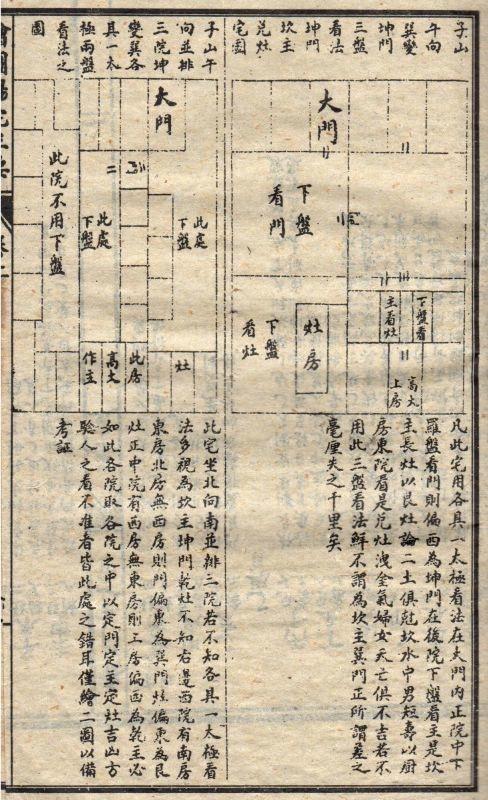 子山
午向
巽變
坤門
三盤
看法
坤門
坎主
兌灶
宅圖
大門
下盤
看門
下盤看
主看灶
高大
上房
灶房
下盤
看灶
凡此宅用各具一太極看法在大門內正院中下
羅盤看門則偏西為坤門在後院下盤看主是坎
主長灶以艮灶論二土俱尅坎水中男短壽以厨
房東院看是兌灶洩金氣婦女夭亡俱不吉若不
用此三盤看法鮮不謂為坎主巽門正所謂差之
毫厘失之千里矣
子山午
向並排
三院坤
變巽各
具一太
極兩盤
看法之
圖
大門
二
此處
下盤
此處
下盤
此院不用下盤
灶
此房
高大
作主
此宅坐北向南並排三院若不知各具一太極看
法多視為坎主坤門乾灶不知右邊西院有南房
東房北房無西房則門偏東為巽門灶偏東為艮
灶正中院有西房無東房則上房偏西為乾主必
如此各院取各院之中以定門定主定灶吉凶方
驗人之看不准者皆此處之錯耳僅繪二圖以備
考証
卷二